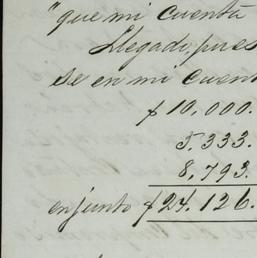 "que mi cuenta
Llegado, pues
se en mi cuent
$10,000.
5.333.
8,793.
enjunto $24.126.